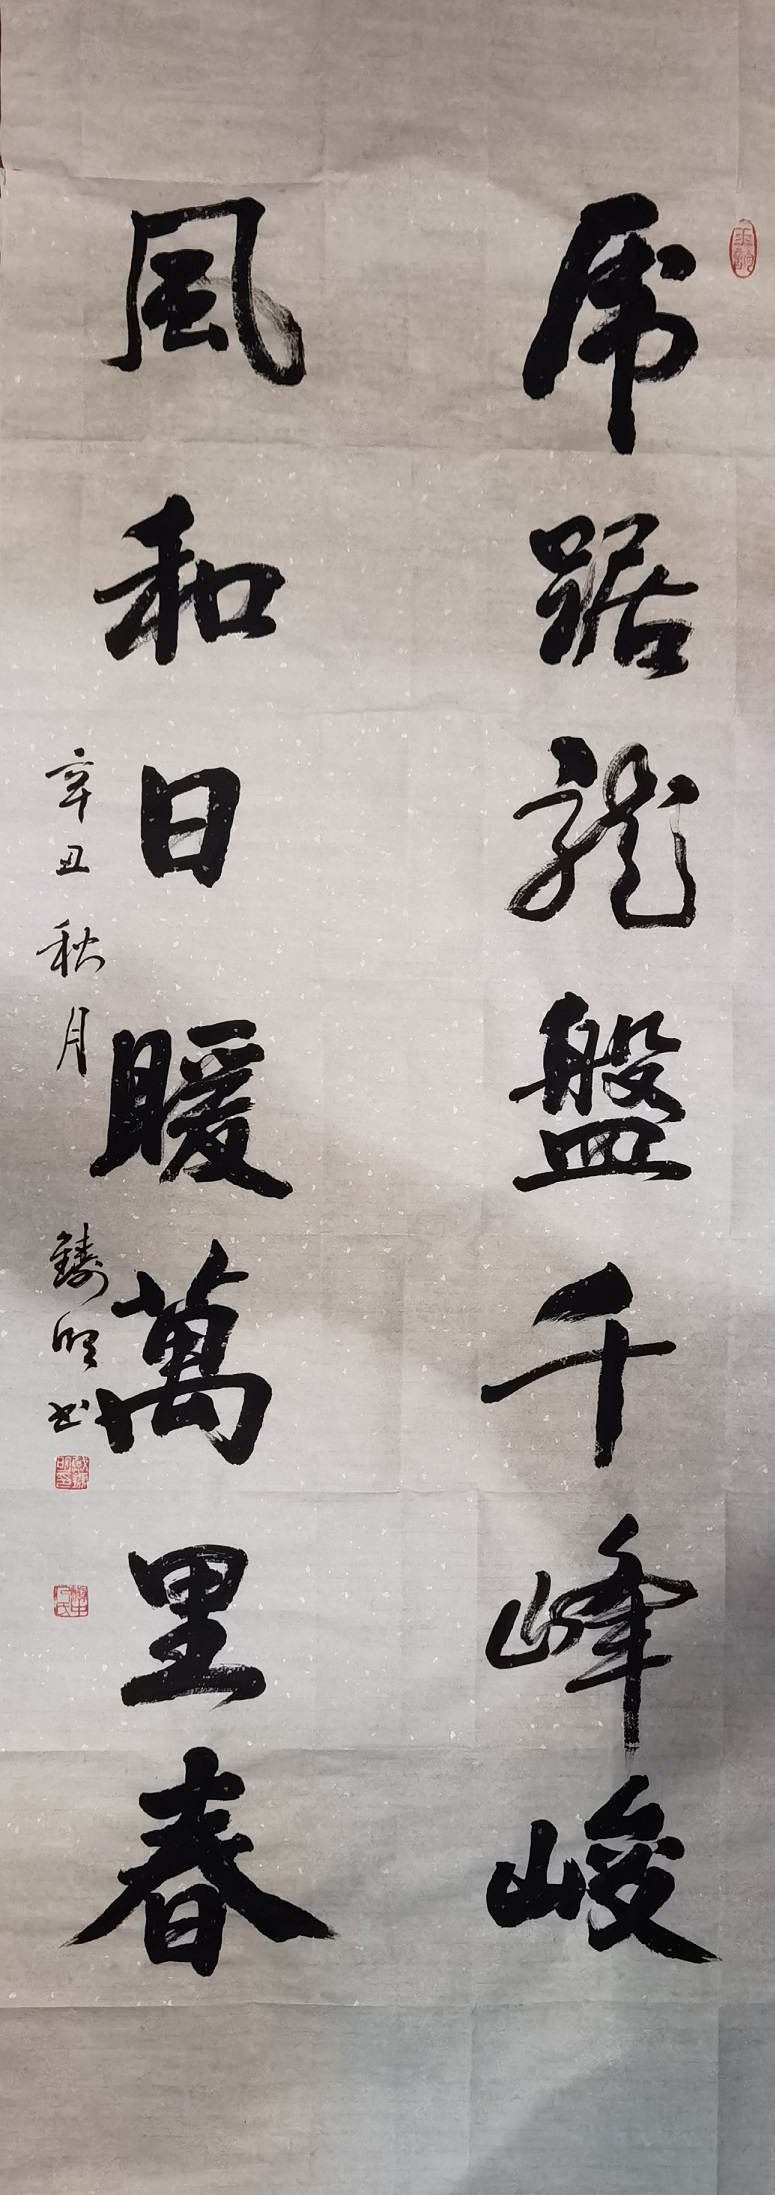 虎踞龍盤千峰峻
風和日暖萬里春
辛丑秋月 鑄明书